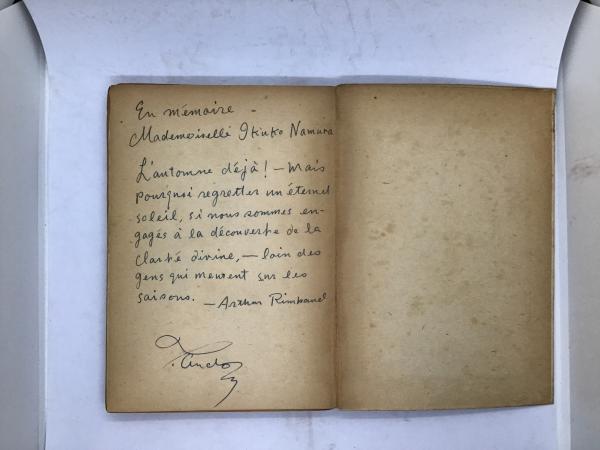 En mémoire -
Mademoiselle Ikuko Namura
L'automne déjà! - Mais
pourquoi regretter un éternel
soleil, si nous sommes en-
gagés à la découverte de la
clarté divine, - loin des
gens qui meurent sur les
saisons. - Arthur Rimbaud